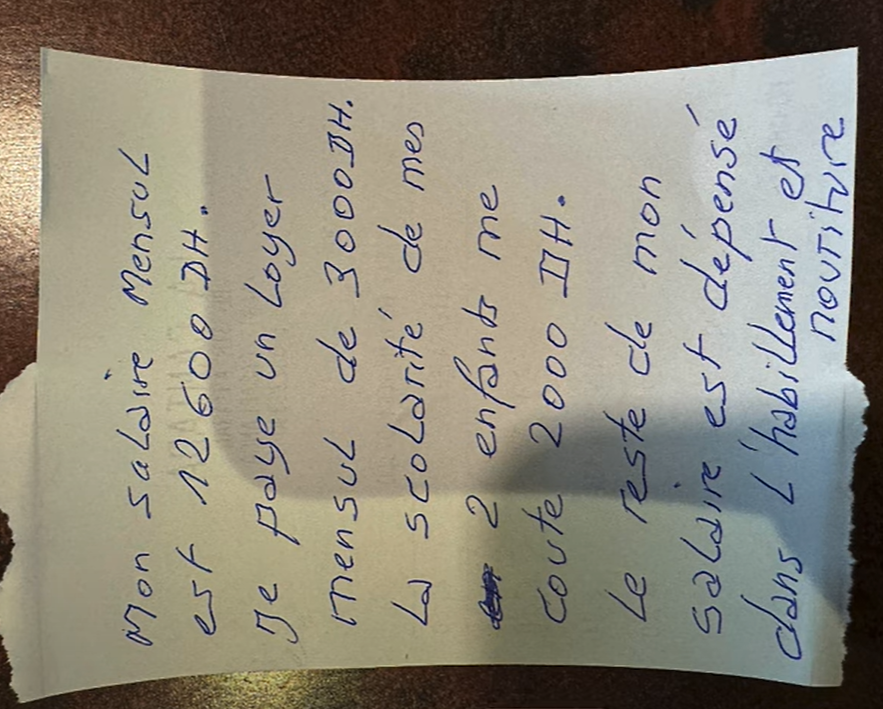 Mon salaire Mensul
est 12600 DH.
Je paye un Loyer
mensul de 3000 DH.
La scolarité de mes
2 enfants me
coute 2000 DH.
Le reste de mon
salaire est dépensé
dans L'habillement et
nouriture